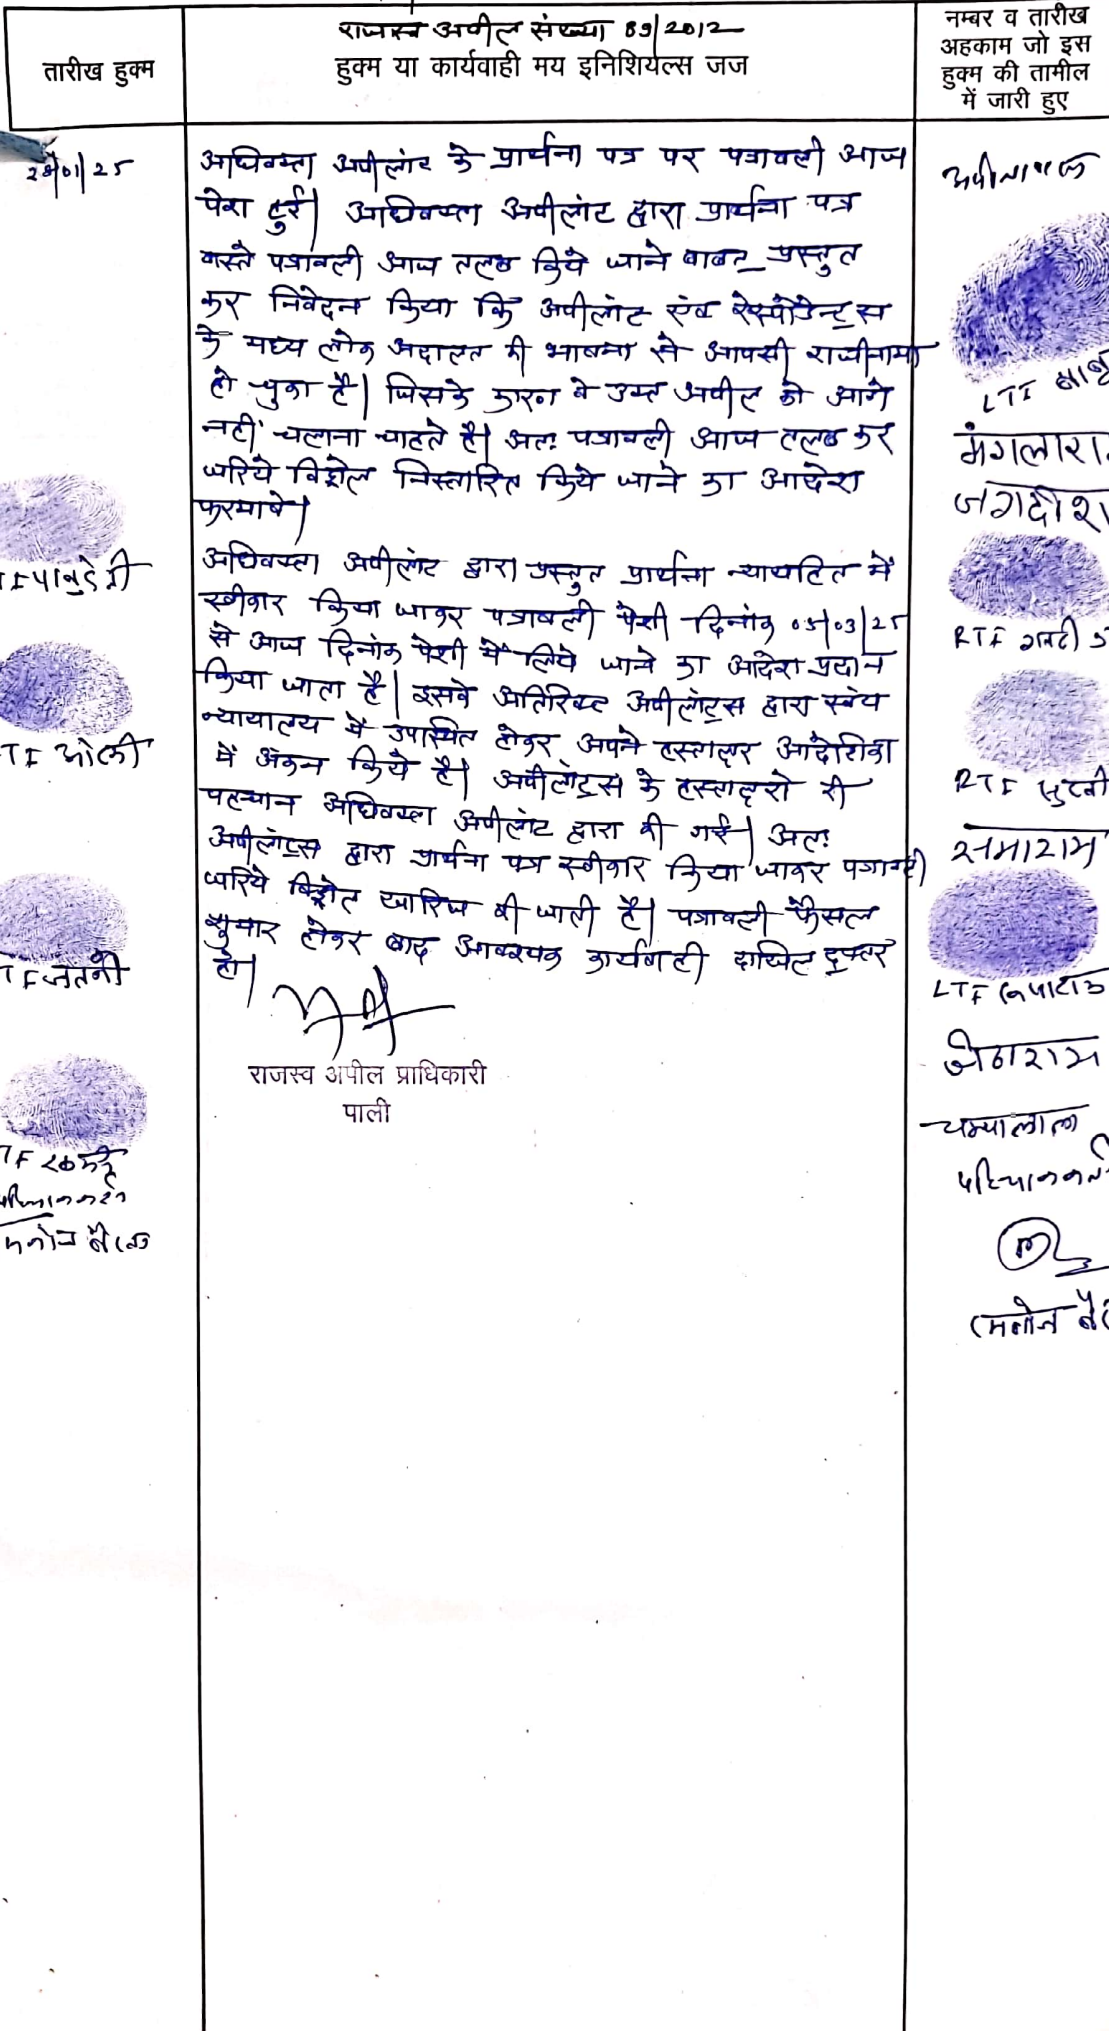 राजस्व अपील संख्या 89/2012
तारीख हुक्म
हुक्म या कार्यवाही मय इनिशियल्स जज
नम्बर व तारीख
अहकाम जो इस
हुक्म की तामील
में जारी हुए
28/01/25
अधिवक्ता अपीलांट के प्रार्थना पत्र पर पत्रावली आज
पेश हुई। अधिवक्ता अपीलांट द्वारा प्रार्थना पत्र
वास्ते पत्रावली आज तलब किये जाने बाबत प्रस्तुत
कर निवेदन किया कि अपीलांट एंव रेस्पोडेन्ट्स
के मध्य लोक अदालत की भावना से आपसी राजीनामा
हो चुका है। जिसके कारण वे उक्त अपील को आगे
नहीं चलाना चाहते है। अतः पत्रावली आज तलब कर
जरिये विड्रोल निस्तारित किये जाने का आदेश
फरमावे।
अधिवक्ता अपीलांट द्वारा प्रस्तुत प्रार्थना न्यायहित में
स्वीकार किया जाकर पत्रावली पेशी दिनांक 05/03/25
से आज दिनांक पेशी में लिये जाने का आदेश प्रदान
किया जाता है। इसके अतिरिक्त अपीलांट्स द्वारा स्वंय
न्यायालय में उपस्थित होकर अपने हस्ताक्षर आदेशिका
में अंकन किये है। अपीलांट्स के हस्ताक्षरो की
पहचान अधिवक्ता अपीलांट द्वारा की गई। अतः
अपीलांट्स द्वारा प्रार्थना पत्र स्वीकार किया जाकर पत्रावली
जरिये विड्रोल खारिज की जाती है। पत्रावली फैसल
शुमार होकर बाद आवश्यक कार्यवाही दाखिल दफ्तर
हो।
राजस्व अपील प्राधिकारी
पाली
LTI
मंगलाराम
जगदीश
RTI
RTI
समाराम
LTI
चम्पालाल